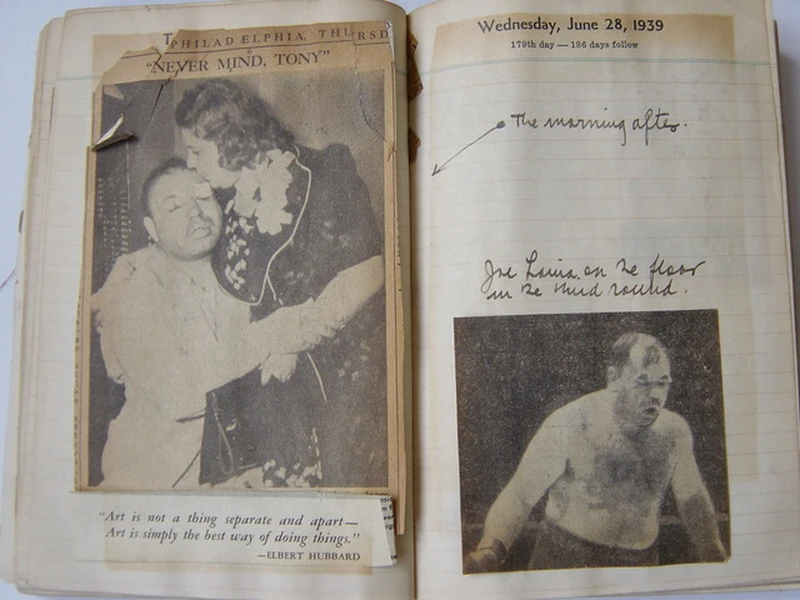 PHILADELPHIA, THURSD
"NEVER MIND, TONY"
"Art is not a thing separate and apart—
Art is simply the best way of doing things."
—ELBERT HUBBARD
Wednesday, June 28, 1939
179th day — 186 days follow
The morning after.
Joe Louis on the floor
in the third round.